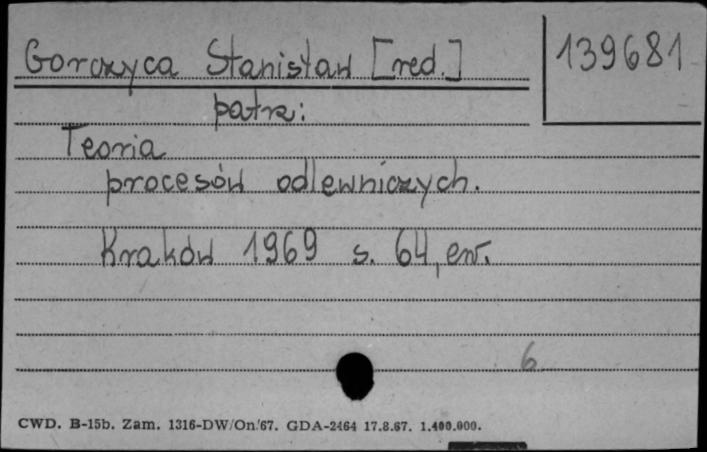 Gorczyca Stanisław [red.]
139681
patrz:
Teoria
procesów odlewniczych.
Kraków 1969 s. 64, err.
6
CWD. B-15b. Zam. 1316-DW/On/67. GDA-2464 17.8.67. 1.400.000.